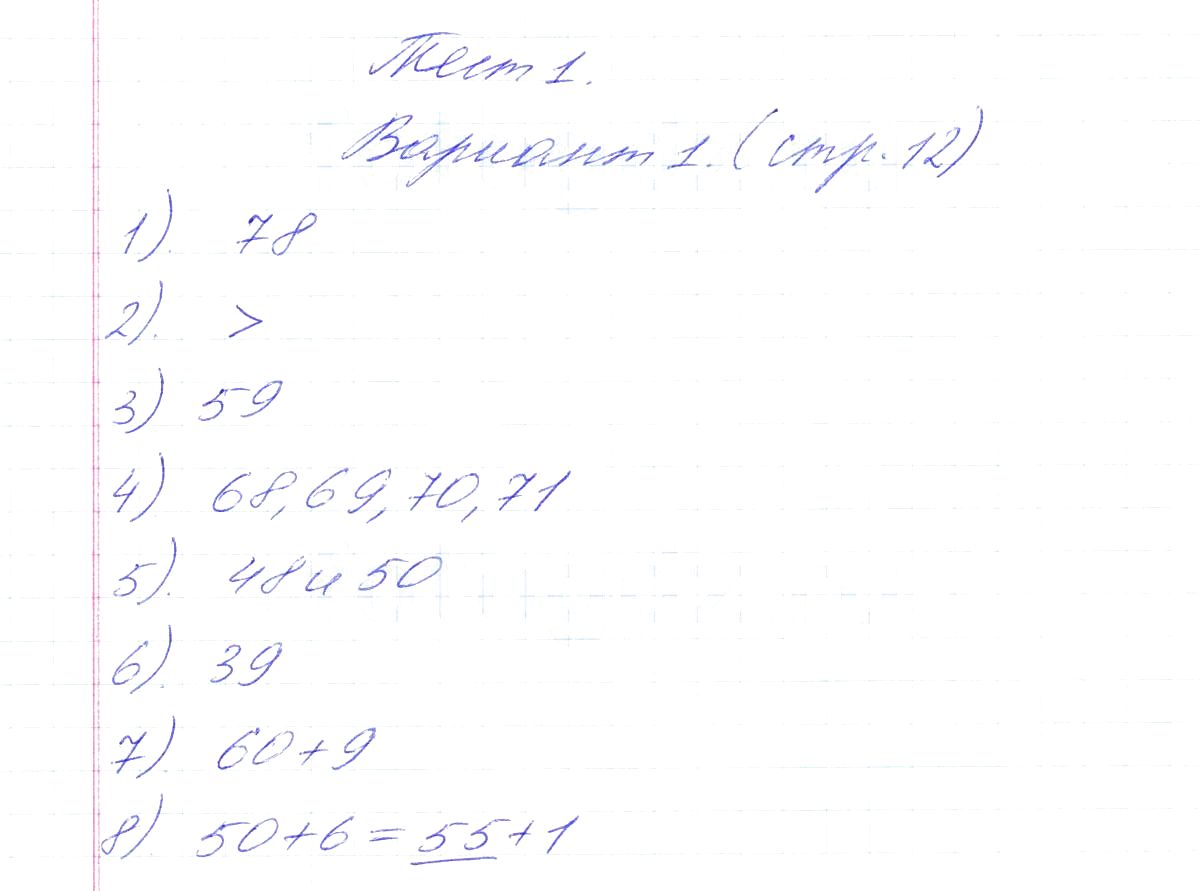 Тест 1.
Вариант 1. (стр. 12)
1). 78
2). >
3) 59
4) 68, 69, 70, 71
5). 48 и 50
6). 39
7) 60+9
8) 50+6=55+1